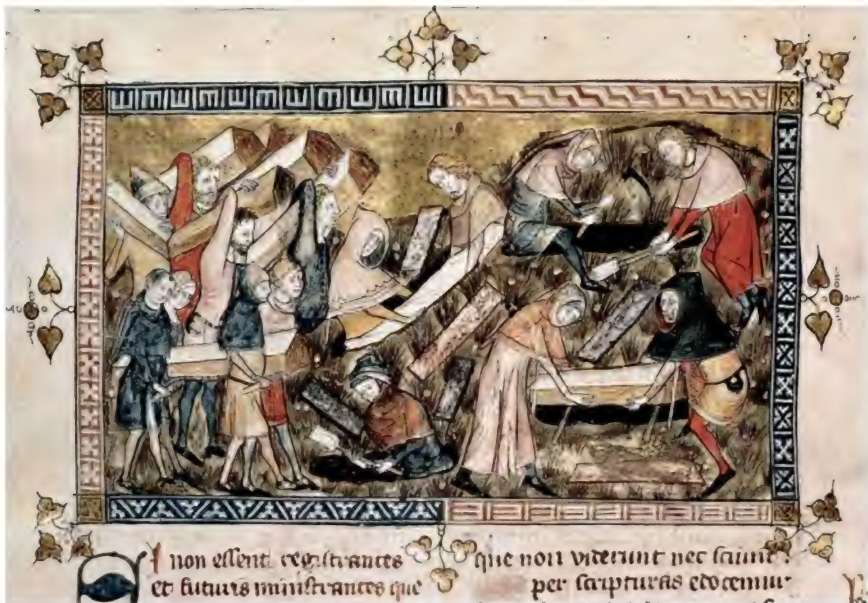 Si non essent registrantes
et futuris ministrantes que
que non viderunt nec sciunt
per scripturas edocemur